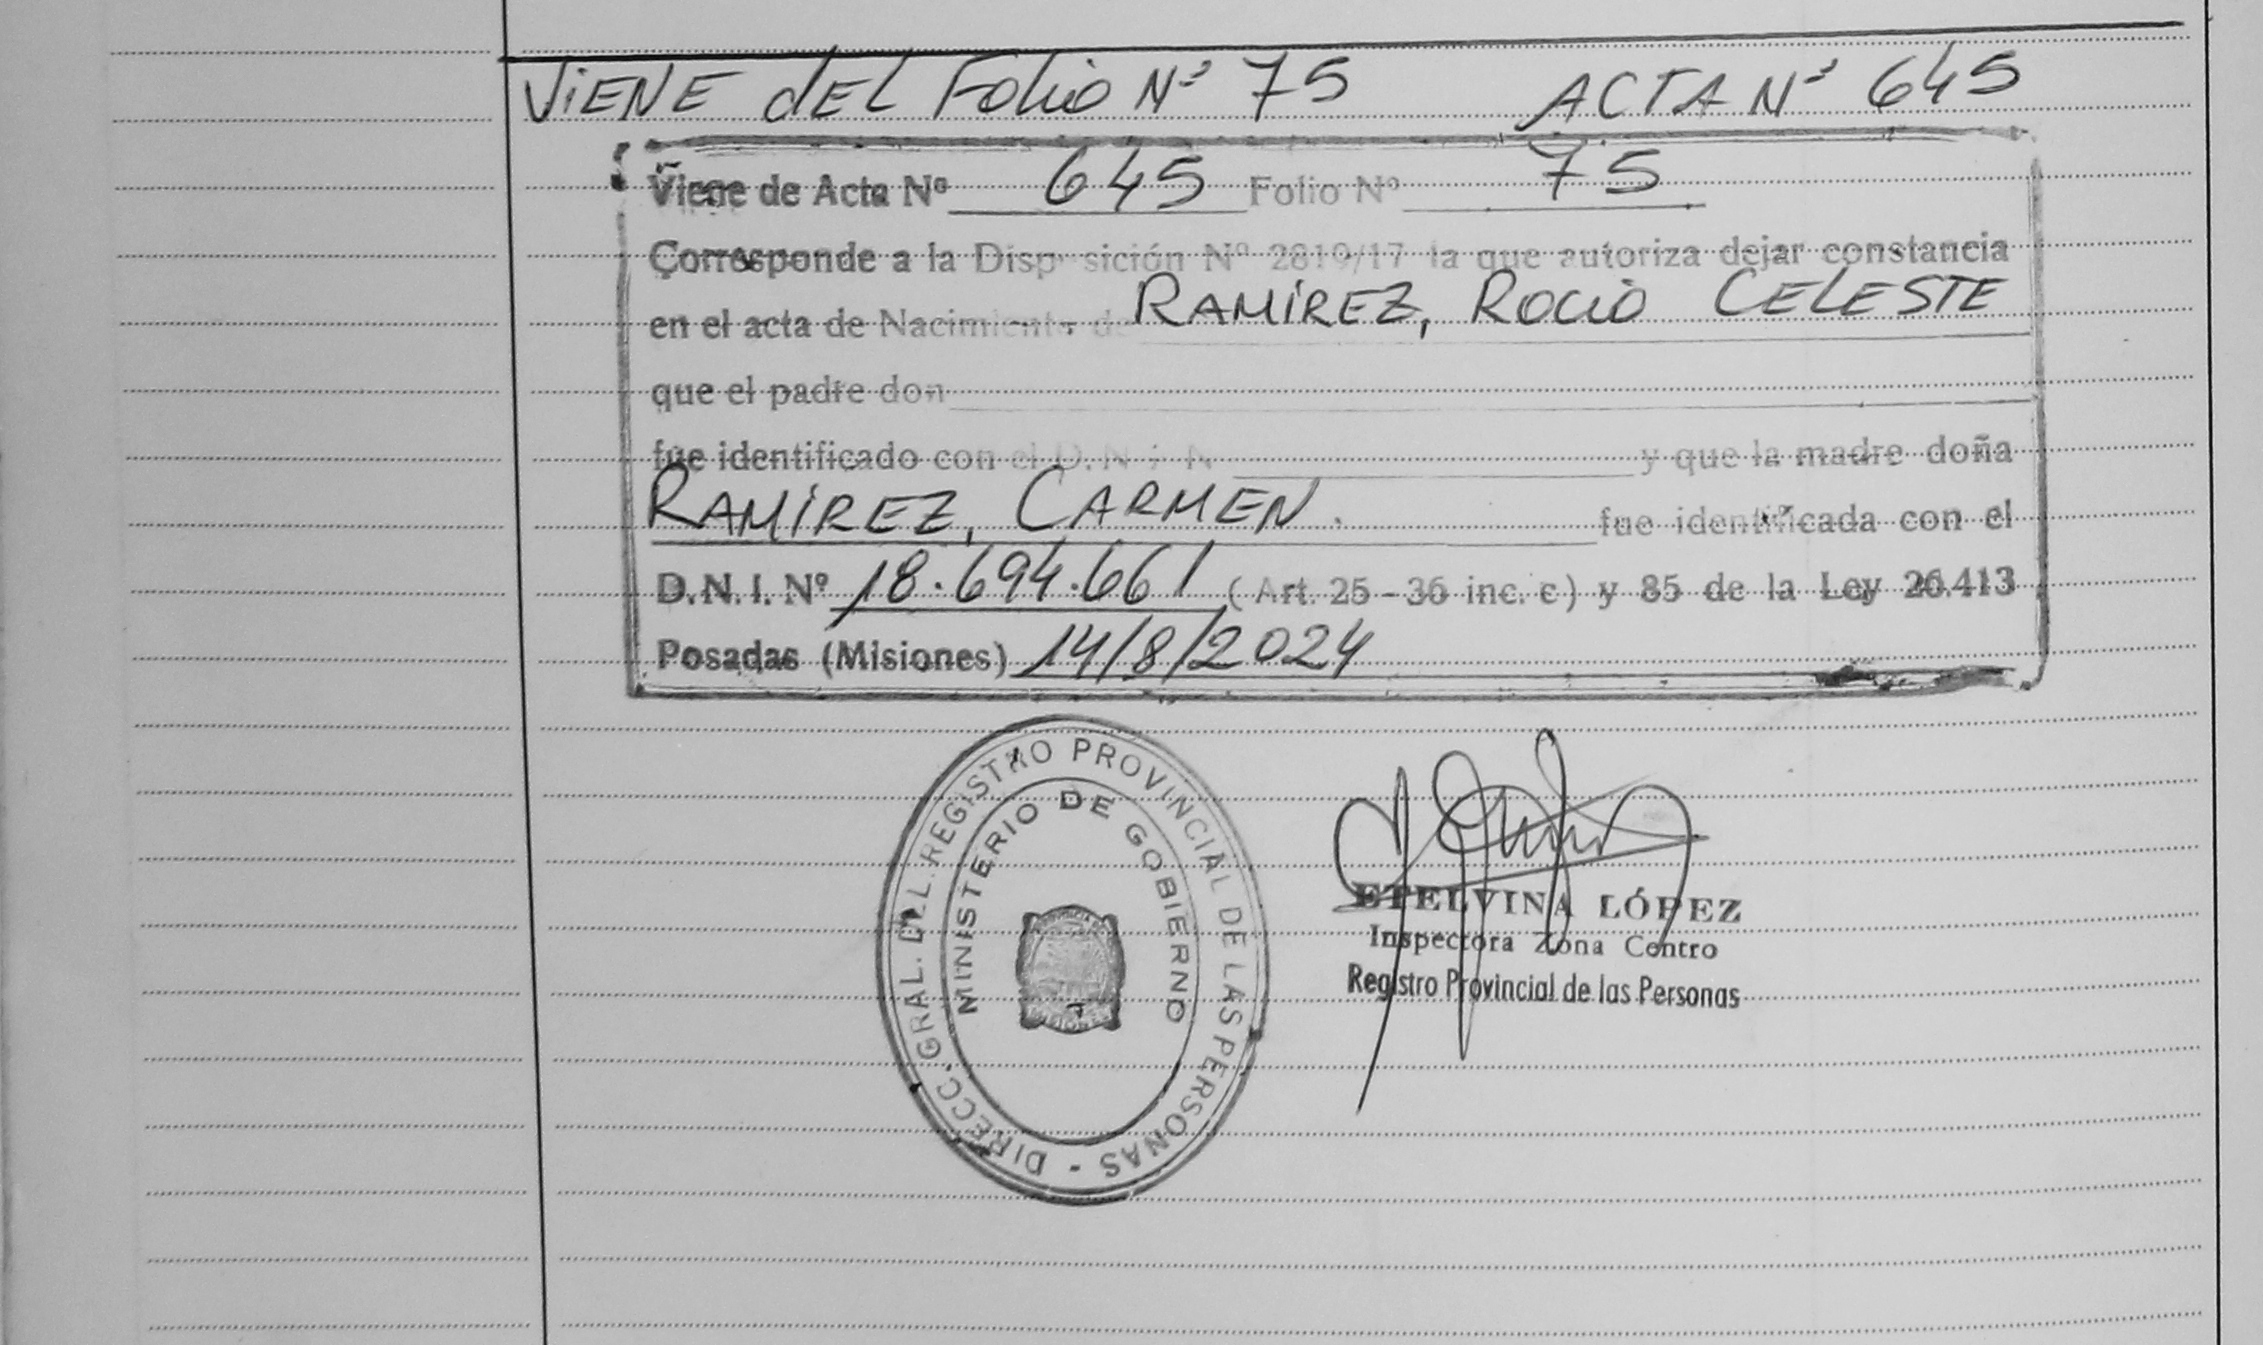 ViENE dEL Folio Nº 75 ACTA Nº 645
Viene de Acta Nº 645 Folio Nº 75
Corresponde a la Disposición Nº 2819/17 la que autoriza dejar constancia
en el acta de Nacimiento de RAMíREZ, ROCIO CELESTE
que el padre don
fue identificado con el D.N.I. N y que la madre doña
RAMíREZ, CARMEN. fue identificada con el
D.N.I. Nº 18.694.661 (Art. 25 - 36 inc. c) y 85 de la Ley 26.413
Posadas (Misiones) 14/8/2024
DIRECC. GRAL. DEL REGISTRO PROVINCIAL DE LAS PERSONAS -
MINISTERIO DE GOBIERNO
ETELVINA LÓPEZ
Inspectora Zona Centro
Registro Provincial de las Personas